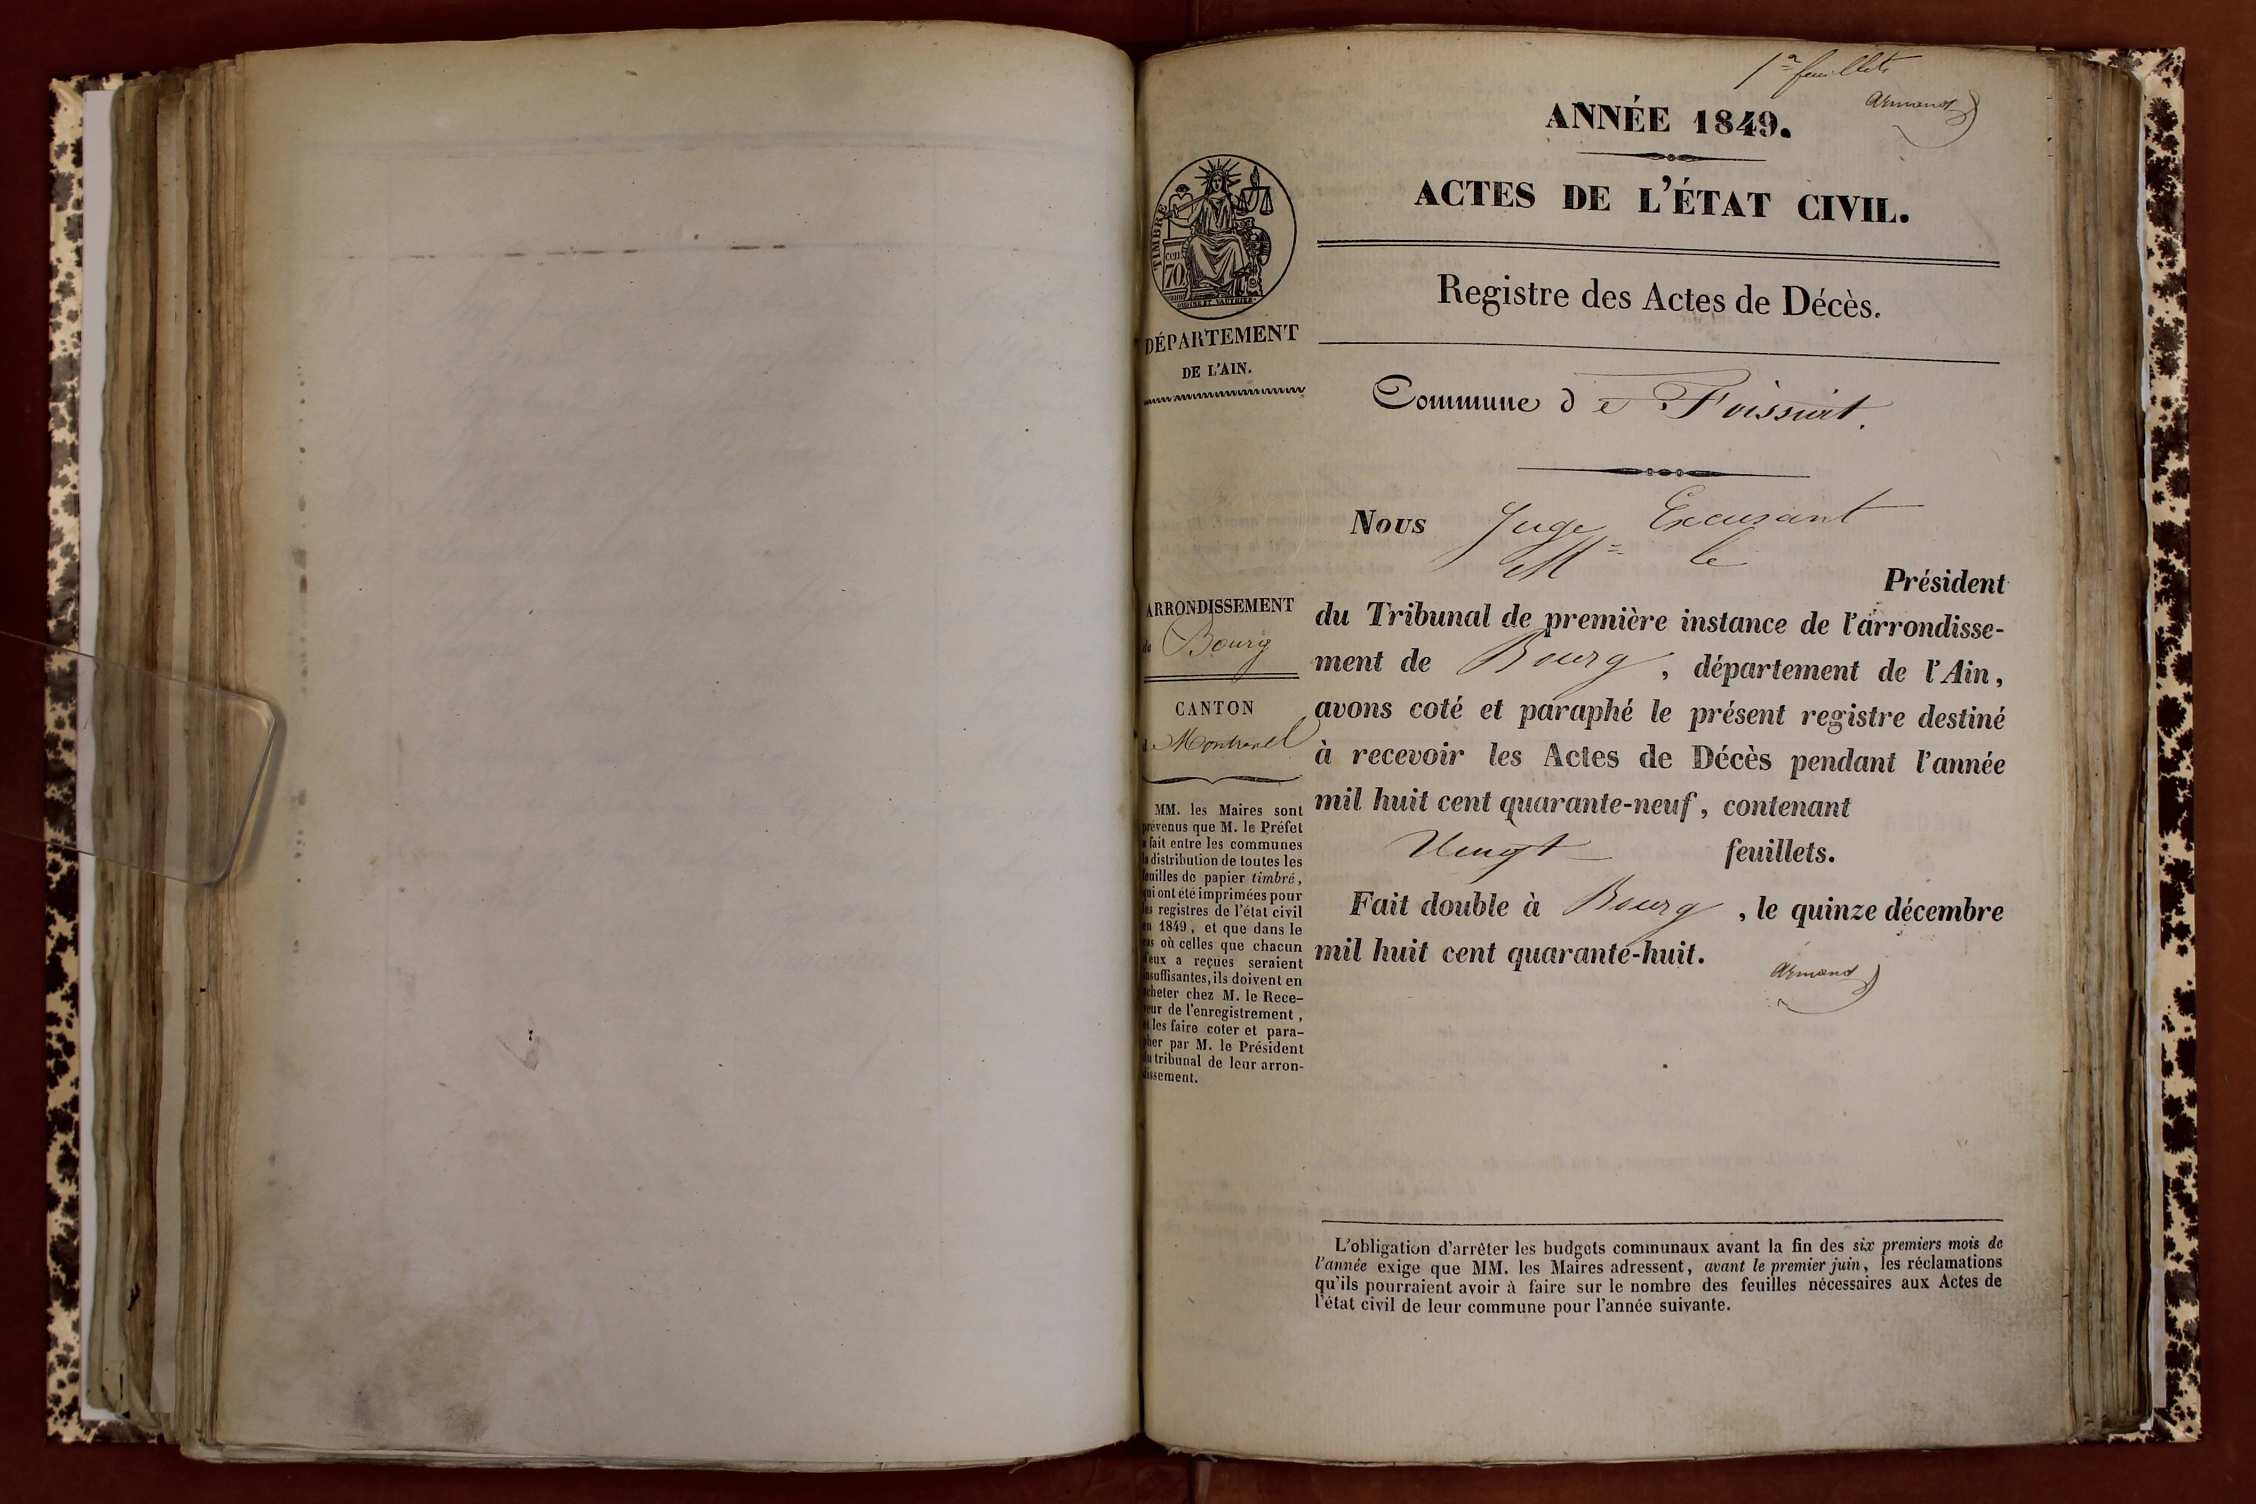 1er feuillet
Armand
ANNÉE 1849.
ACTES DE L'ÉTAT CIVIL.
TIMBRE
CEN.
70
Registre des Actes de Décès.
DÉPARTEMENT
DE L'AIN.
Commune de Foissiat.
Nous Juge Excusant
Mr le
Président
du Tribunal de première instance de l'arrondisse-
ment de Bourg, département de l'Ain,
avons coté et paraphé le présent registre destiné
à recevoir les Actes de Décès pendant l'année
mil huit cent quarante-neuf, contenant
Vingt feuillets.
Fait double à Bourg, le quinze décembre
mil huit cent quarante-huit.
Armand
ARRONDISSEMENT
de Bourg
CANTON
de Montrevel
MM. les Maires sont
prévenus que M. le Préfet
a fait entre les communes
la distribution de toutes les
feuilles de papier timbré,
qui ont été imprimées pour
les registres de l'état civil
en 1849, et que dans le
cas où celles que chacun
d'eux a reçues seraient
insuffisantes, ils doivent en
acheter chez M. le Rece-
veur de l'enregistrement,
et les faire coter et para-
pher par M. le Président
du tribunal de leur arron-
dissement.
L'obligation d'arrêter les budgets communaux avant la fin des six premiers mois de
l'année exige que MM. les Maires adressent, avant le premier juin, les réclamations
qu'ils pourraient avoir à faire sur le nombre des feuilles nécessaires aux Actes de
l'état civil de leur commune pour l'année suivante.